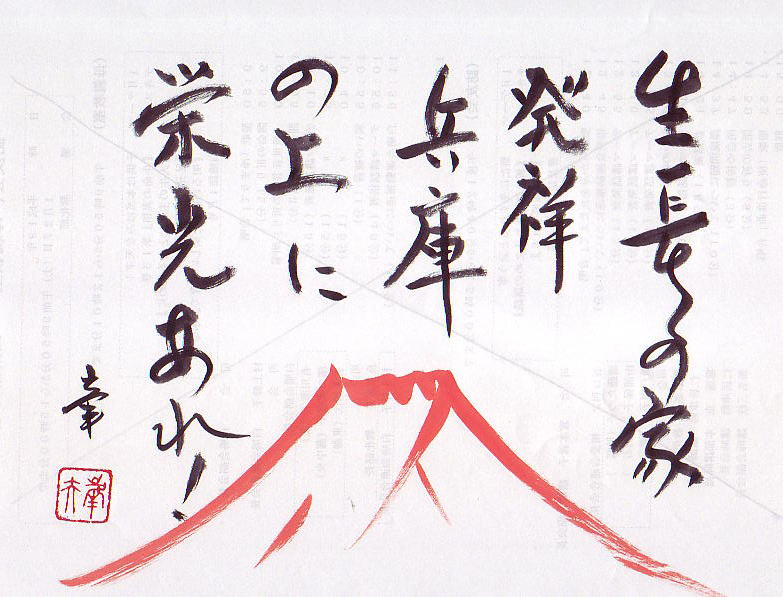 生長の家
発祥
兵庫
の上に
栄光あれ!